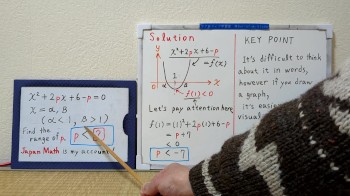 x² + 2px + 6 - p = 0
x = α, β
(α < 1, β > 1)
Find the
range of p.
p <
Japan Math is my account!
Solution
y
x² + 2px + 6 - p
= f(x)
α
1
β
x
f(1) < 0
Let's pay attention here
f(1) = (1)² + 2p(1) + 6 - p
= p + 7
< 0
p < -7
KEY POINT
It's difficult to think
about it in words,
however if you draw
a graph,
it's easie
visual